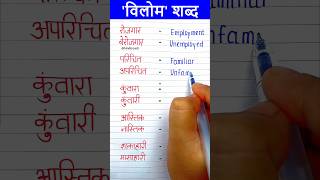 'विलोम' शब्द
रोजगार - Employment
बेरोजगार - Unemployed
परिचित - Familiar
अपरिचित - Unfam
कुंवारा -
कुंवारी -
आस्तिक -
नास्तिक -
शाकाहारी -
मासाहारी -